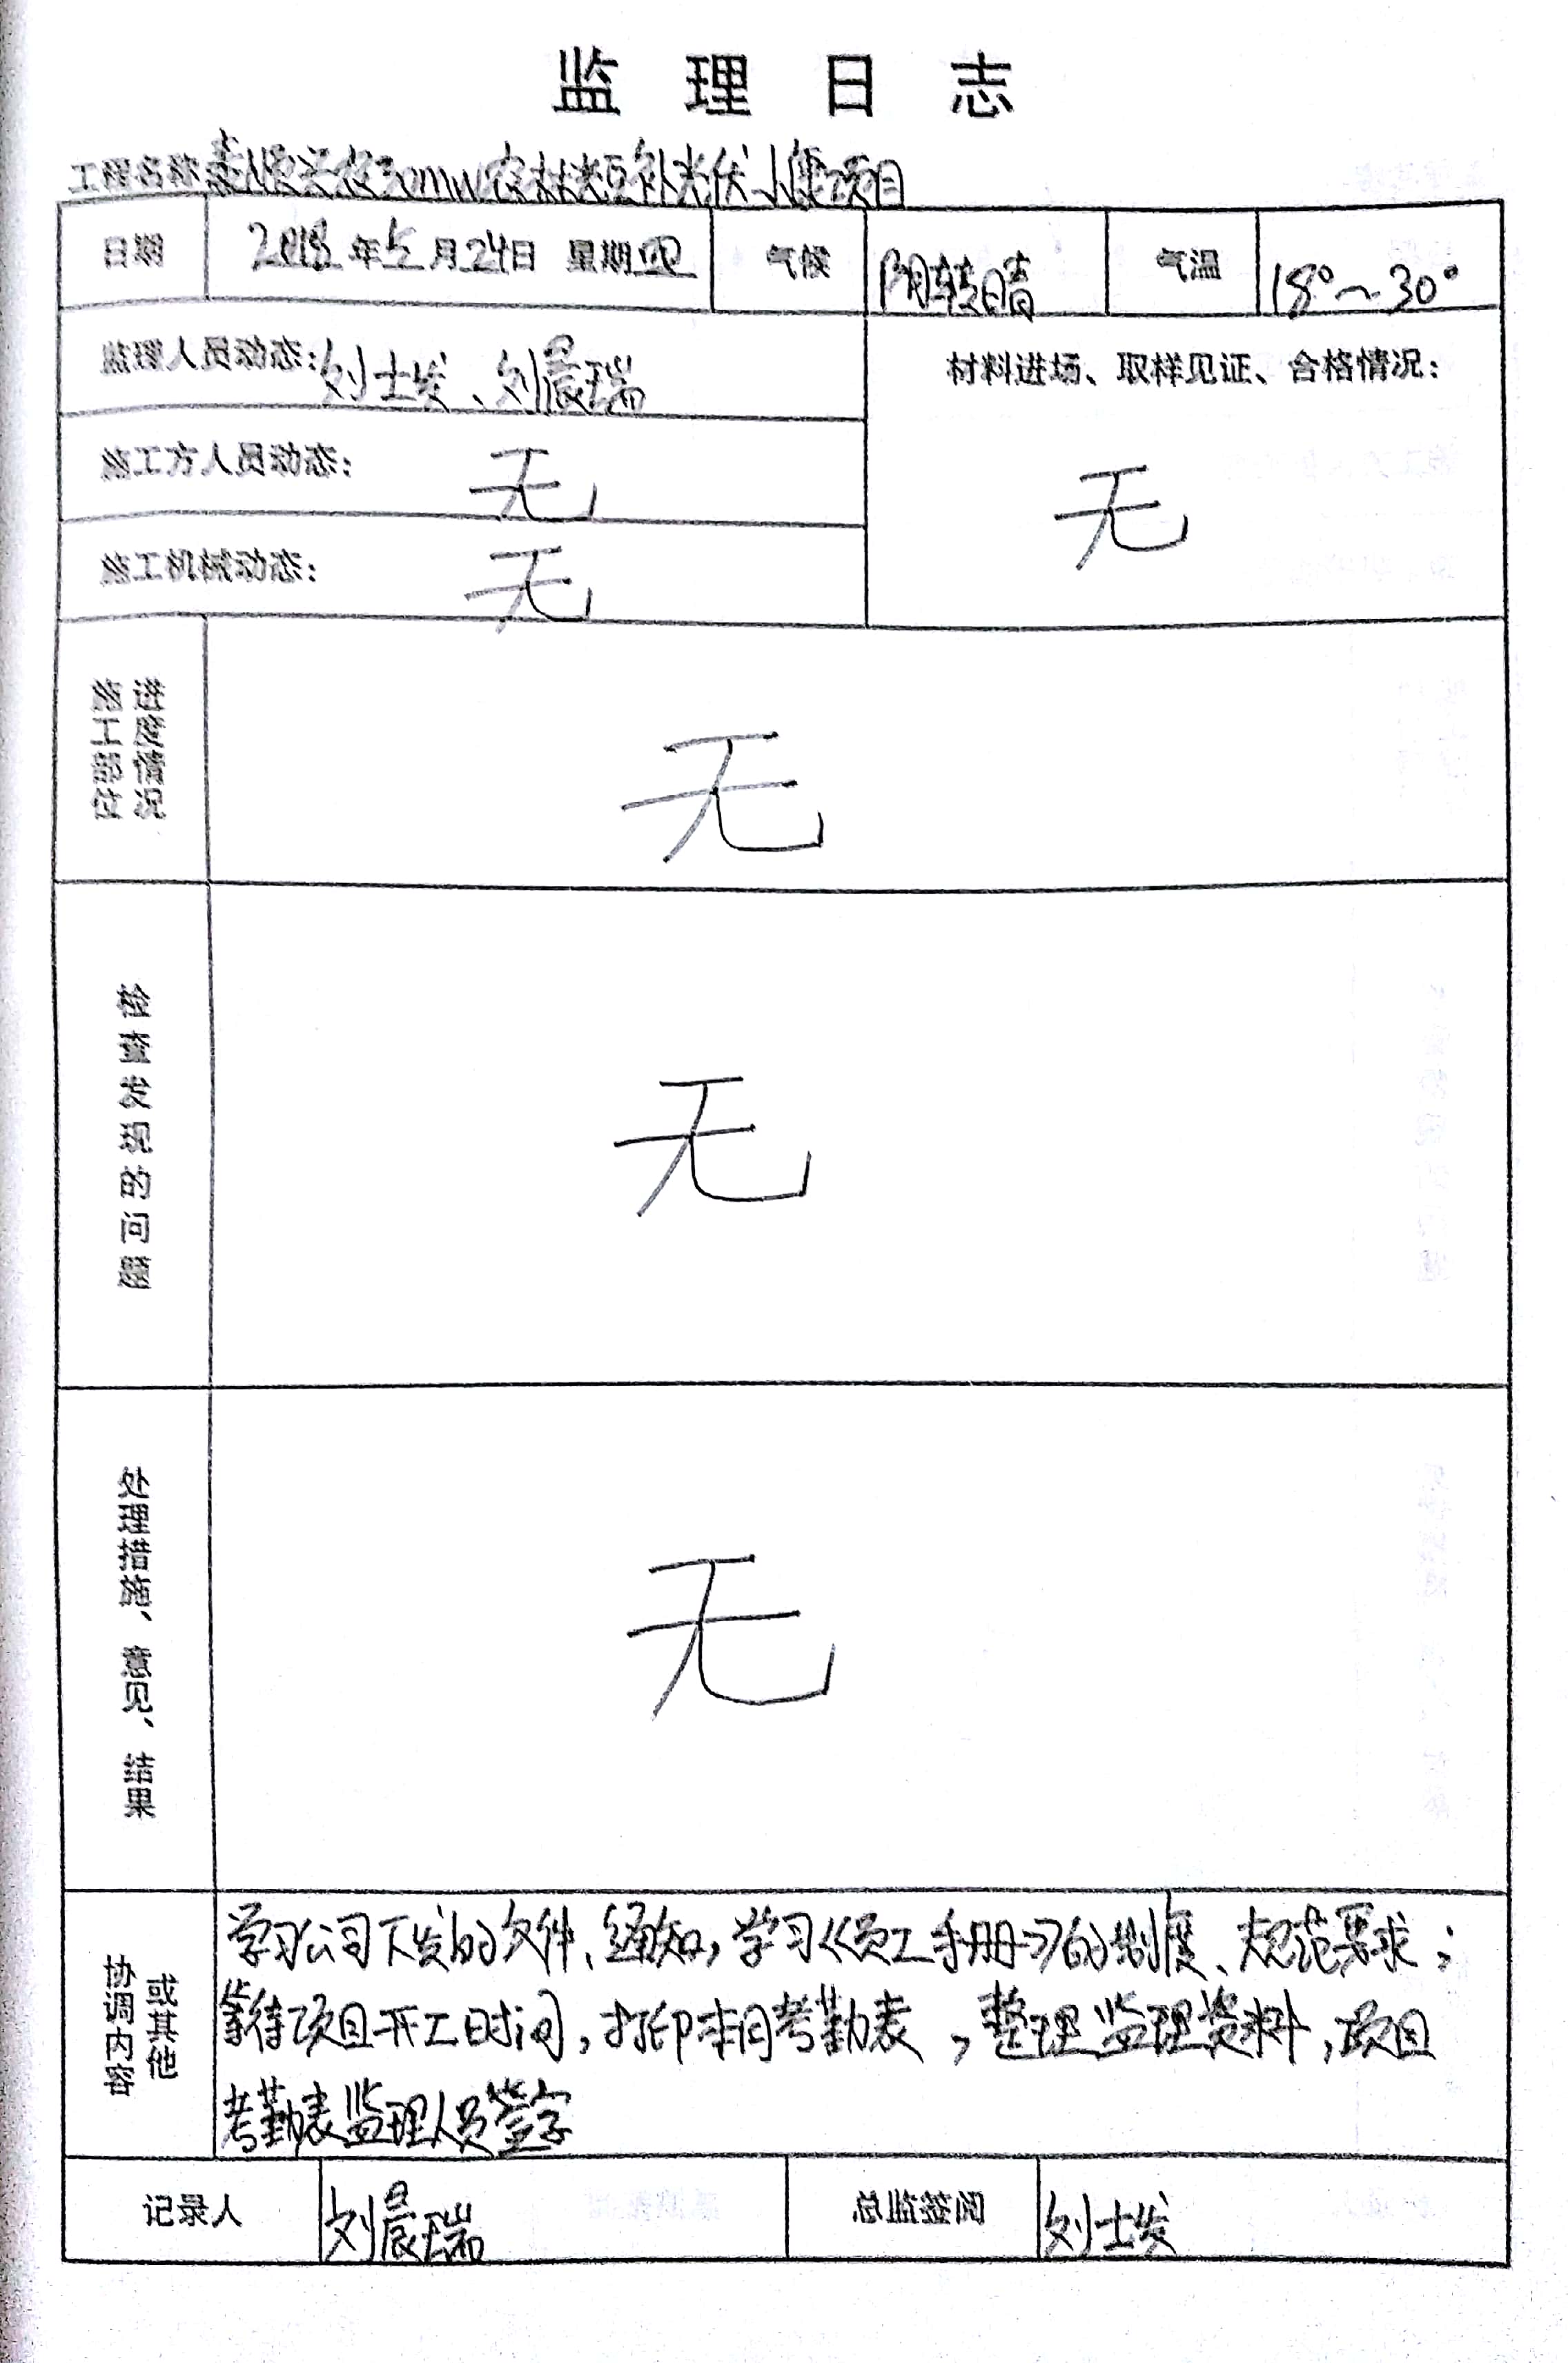 监理日志
工程名称 30mw农林光互补光伏小康项目
日期 2018年5月24日 星期四 气候 阴转晴 气温 18°~30°
监理人员动态:刘士发、刘晨瑞
材料进场、取样见证、合格情况:
无
施工方人员动态: 无
施工机械动态: 无
施工部位
进度情况
无
检查发现的问题
无
处理措施、意见、结果
无
协调内容
或其他
学习公司下发的文件、通知,学习《员工手册》的制度、规范要求;
等待项目开工时间,打印本月考勤表,整理监理资料,项目
考勤表监理人员签字
记录人 刘晨瑞 总监签阅 刘士发